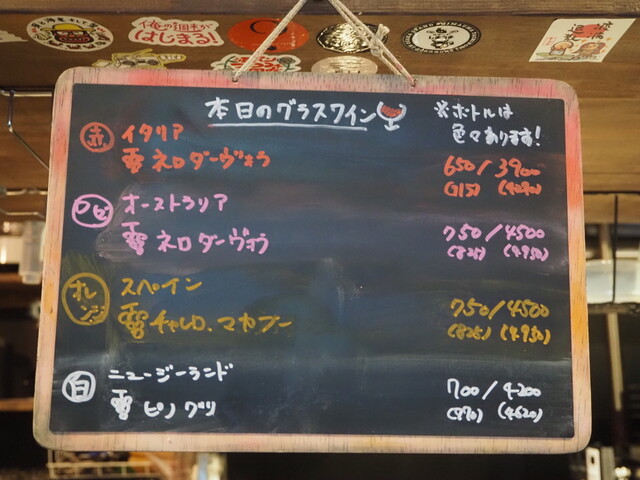 俺の調味が
はじまる!
本日のグラスワイン
※ボトルは
色々あります!
赤
イタリア
ネロダーヴォラ
650/3900
(715)
ロゼ
オーストラリア
ネロダーヴォラ
750/4500
(825) (4.950)
オレンジ
スペイン
チャレロ、マカブー
750/4500
(825) (4.950)
白
ニュージーランド
ピノグリ
700/4200
(770) (4620)